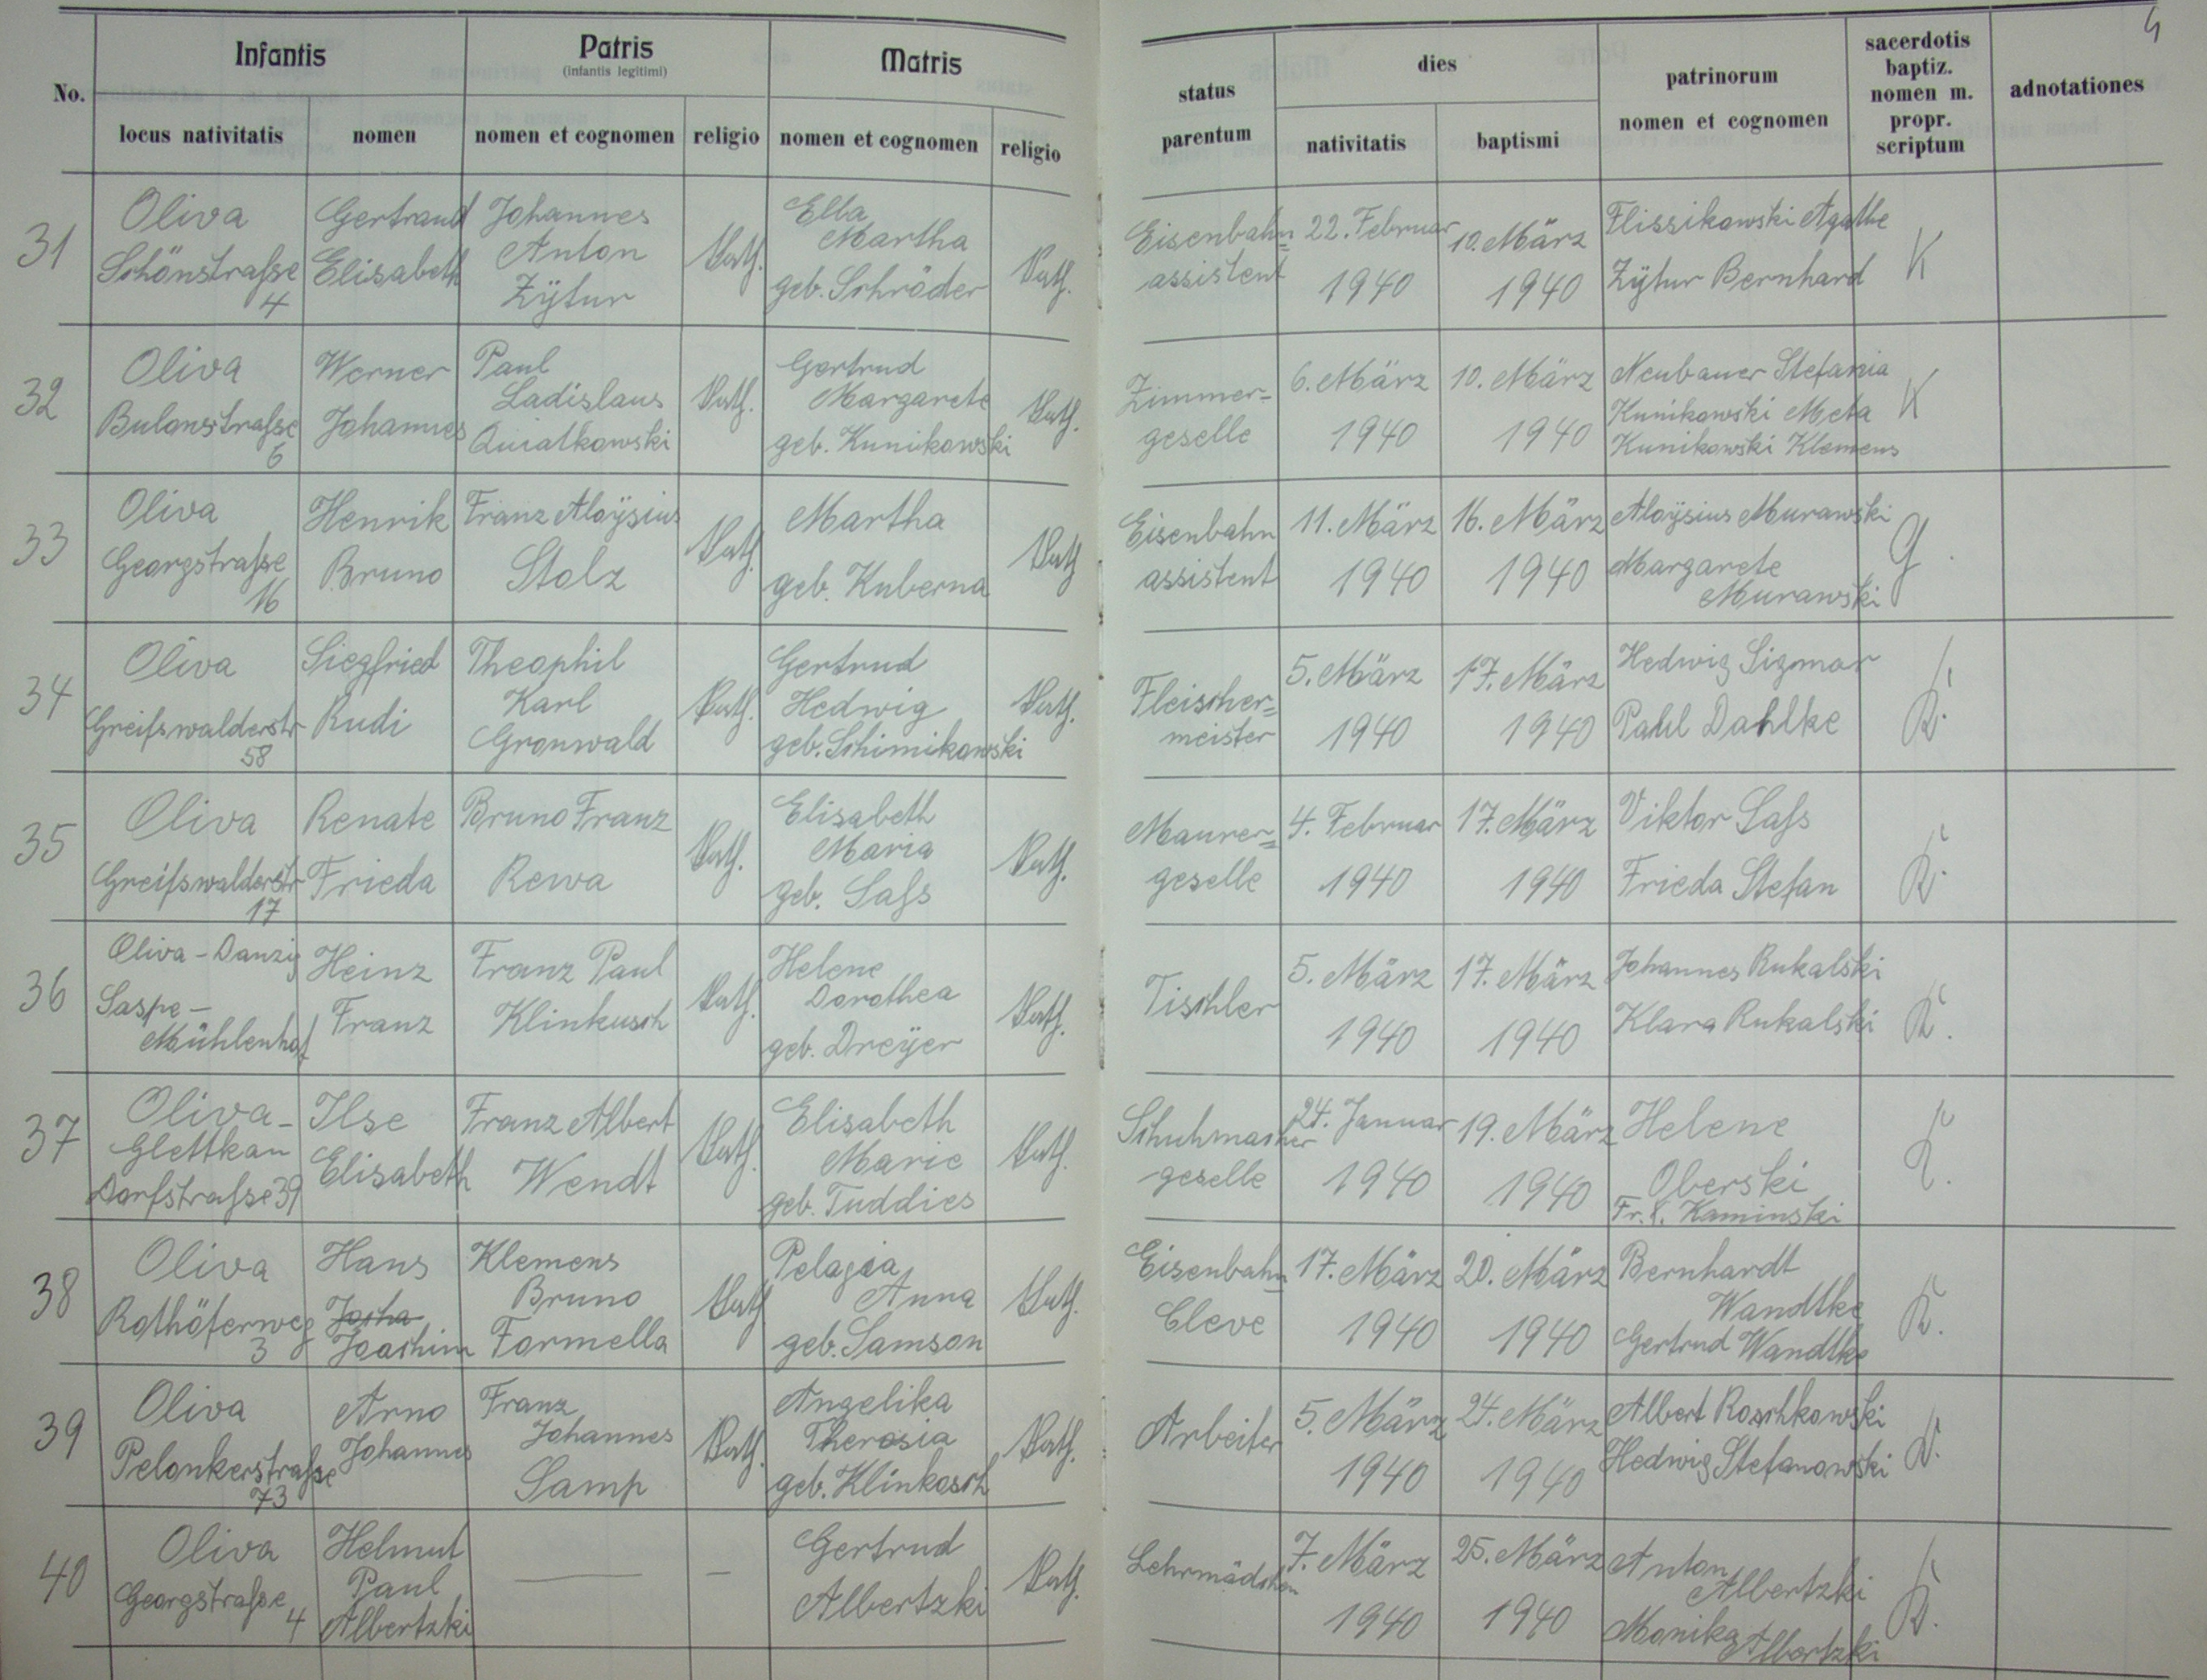 4
No.
Infantis
Patris
(infantis legitimi)
Matris
status parentum
dies
patrinorum nomen et cognomen
sacerdotis
baptiz.
nomen m.
propr.
scriptum
adnotationes
locus nativitatis
nomen
nomen et cognomen
religio
nomen et cognomen
religio
nativitatis
baptismi
31
Oliva
Schönstraße
4
Gertraud
Elisabeth
Johannes
Anton
Zÿtur
Kath.
Ella
Martha
geb. Schröder
Kath.
Eisenbahn=
assistent
22. Februar
1940
10. März
1940
Flissikowski Agathe
Zÿtur Bernhard
K
32
Oliva
Bulowstraße
6
Werner
Johannes
Paul
Ladislaus
Quiatkowski
Kath.
Gertrud
Margarete
geb. Kunikowski
Kath.
Zimmer=
geselle
6. März
1940
10. März
1940
Neubauer Stefania
Kunikowski Meta
Kunikowski Klemens
K
33
Oliva
Georgstraße
16
Henrik
Bruno
Franz Aloÿsius
Stolz
Kath.
Martha
geb. Kuberna
Kath
Eisenbahn
assistent
11. März
1940
16. März
1940
Aloÿsius Murawski
Margarete
Murawski
G.
34
Oliva
Greifswalderstr
58
Siegfried
Rudi
Theophil
Karl
Gronwald
Kath.
Gertrud
Hedwig
geb. Schimikowski
Kath.
Fleischer=
meister
5. März
1940
17. März
1940
Hedwig Sigmar
Paul Dahlke
K.
35
Oliva
Greifswalderstr
17
Renate
Frieda
Bruno Franz
Rewa
Kath.
Elisabeth
Maria
geb. Saß
Kath.
Maurer=
geselle
4. Februar
1940
17. März
1940
Viktor Saß
Frieda Stefan
K.
36
Oliva - Danzig
Saspe -
Mühlenhof
Heinz
Franz
Franz Paul
Klinkusch
Kath.
Helene
Dorothea
geb. Dreÿer
Kath.
Tischler
5. März
1940
17. März
1940
Johannes Rukalski
Klara Rukalski
K.
37
Oliva -
Glettkau
Dorfstraße 39
Ilse
Elisabeth
Franz Albert
Wendt
Kath.
Elisabeth
Marie
geb. Tuddies
Kath.
Schuhmacher
geselle
24. Januar
1940
19. März
1940
Helene
Oberski
Kaminski
38
Oliva
Rothöferweg
3
Hans
Joachim
Klemens
Bruno
Formella
Kath
Pelagia
Anna
geb. Samson
Kath.
Eisenbahn=
Cleve
17. März
1940
20. März
1940
Bernhardt
Wandtke
Gertrud Wandtke
K.
39
Oliva
Pelonkerstraße
73
Arno
Johannes
Franz
Johannes
Samp
Kath.
Angelika
Theresia
geb. Klinkosch
Kath.
Arbeiter
5. März
1940
24. März
1940
Albert Roschkowski
Hedwig Stefanowski
40
Oliva
Georgstraße
4
Helmut
Paul
Albertzki
Gertrud
Albertzki
Kath.
Lehrmädchen
7. März
1940
25. März
1940
Anton
Albertzki
Monika Albertzki
K.